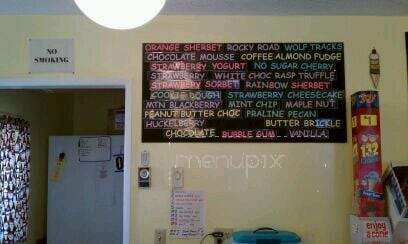 NO
SMOKING
ORANGE SHERBET ROCKY ROAD WOLF TRACKS
CHOCOLATE MOUSSE COFFEE ALMOND FUDGE
STRAWBERRY YOGURT NO SUGAR CHERRY
STRAWBERRY WHITE CHOC RASP TRUFFLE
STRAWBERRY SORBET RAINBOW SHERBET
COOKIE DOUGH STRAWBERRY CHEESECAKE
MTN BLACKBERRY MINT CHIP MAPLE NUT
PEANUT BUTTER CHOC PRALINE PECAN
HUCKLEBERRY BUTTER BRICKLE
CHOCOLATE BUBBLE GUM VANILLA
menupix
132
enjoy
a cone